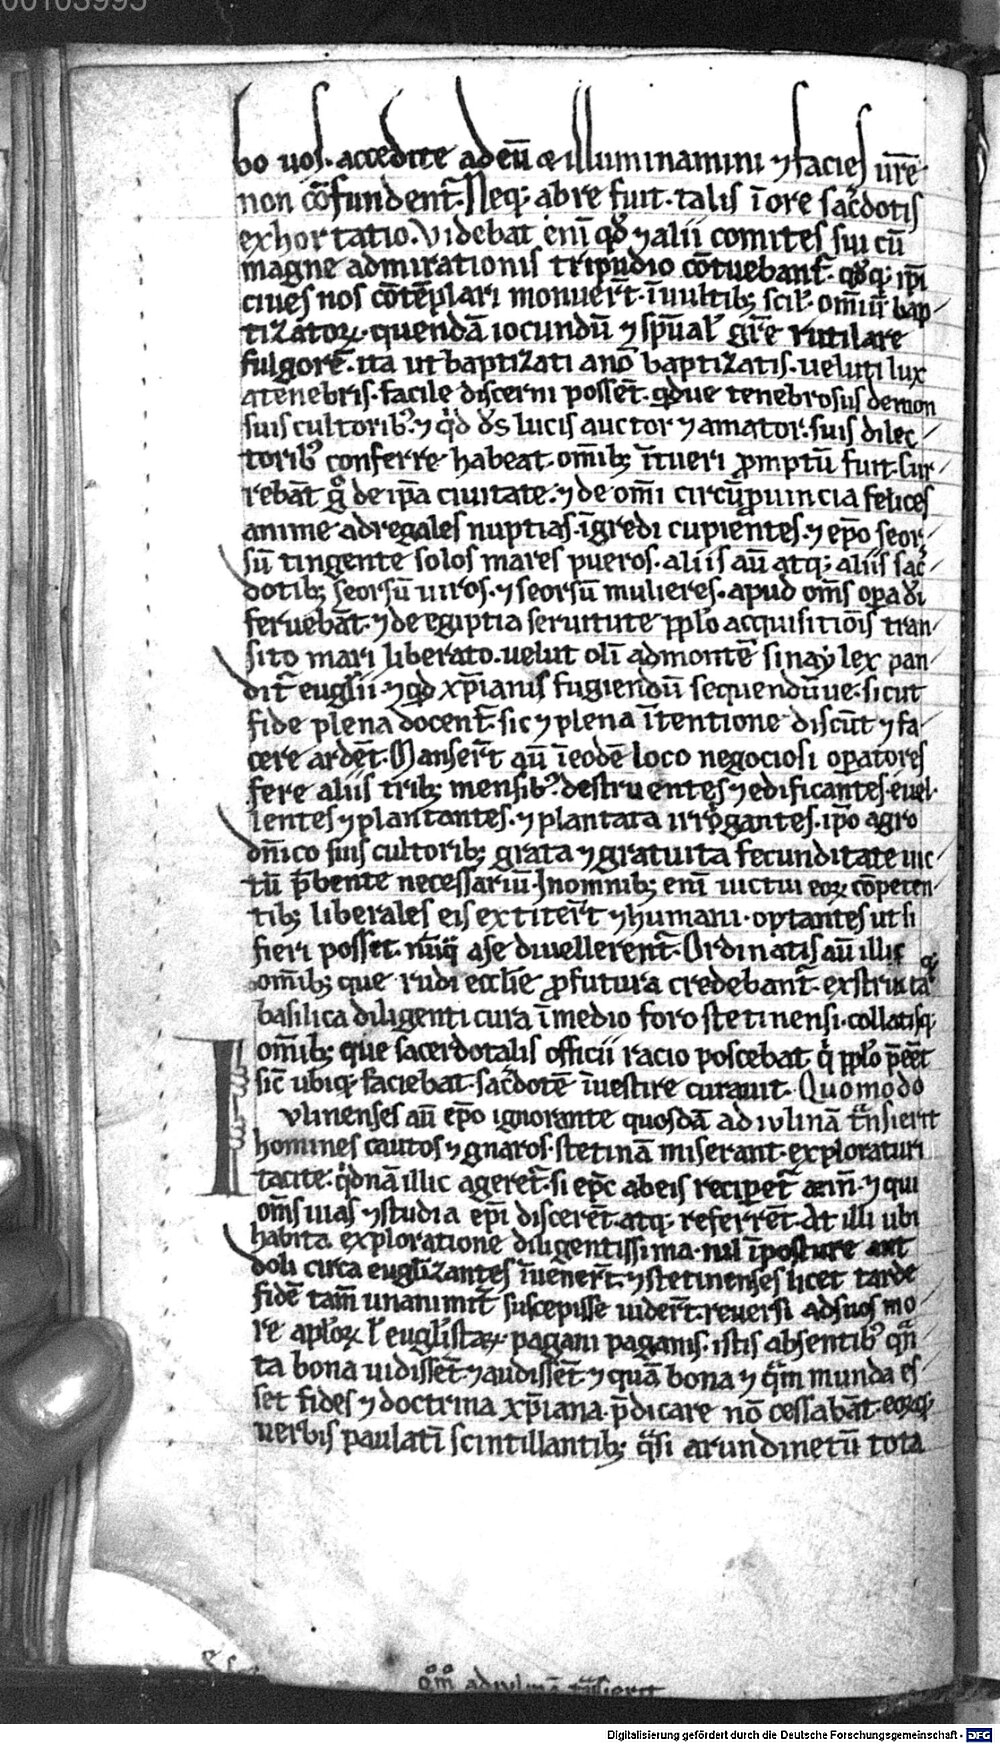 00103995
bo uos. accedite ad eū & illuminamini ⁊ facies ur̄e
non cōfundent̄. Neq; ab re fuit. talis ī ore sac̄dotis
exhortatio. Videbat eni̅ qd̄ ⁊ alii comites sui cū
magne admirationis tripudio cōtuebant̄. qd̄q; ip̄i
ciues nos cōtēplari monuer̄t. ī uultib; scil᷑. om̄iū bap-
tizatoꝝ. quendā iocundū ⁊ sp̄ual᷑ gr̄e rutilare
fulgorē. ita ut baptizati a nō baptizatis. ueluti lux
a tenebris. facile discerni possēt. qd̄ue tenebrosus demon
suis cultorib᷒. ⁊ qͥd d̄s lucis auctor ⁊ amator. suis dilec-
torib᷒ conferre habeat. om̄ib; ītueri ꝓmptū fuit. Cur-
rebāt gͦ de ip̄a ciuitate. ⁊ de om̄i circūꝓuincia felices
anime ad regales nuptias. īgredi cupientes. ⁊ ep̄o seor-
sū tingente solos mares pueros. aliis aū atq; aliis sac̄-
dotib; seorsū uiros. ⁊ seorsū mulieres. apud om̄s opa d̄i
feruebāt. ⁊ de egiptia seruitute pplo acquisitiōis tran-
sito mari liberato. uelut oli̅ ad montē sinay lex pan-
dit̄ eugl̄ii. ⁊ qd̄ xp̄ianis fugiendū sequendūue. sicut
fide plena docent̄. sic ⁊ plena ītentione discūt ⁊ fa-
cere ardēt. Manser̄t aū ī eodē loco negociosi opatores
fere aliis trib; mensib᷒. destruentes ⁊ edificantes. euel-
lentes ⁊ plantantes. ⁊ plantata irrogantes. ip̄o agro
dn̄ico suis cultorib; grata ⁊ gratuita fecunditate uic-
tū p̄bente necessariū. In omnib; eni̅ uictui eoꝝ cōpeten-
tib; liberales eis extiter̄t ⁊ humani. optantes ut si
fieri posset. nūqͣ a se diuellerent̄. Ordinatis aū illis
om̄ib; que rudi eccl̄ie ꝓfutura credebant̄. exstructaq;
basilica diligenti cura ī medio foro stetinensi. collatisq;
om̄ib; que sacerdotalis officii racio poscebat qͥ pplo p̄eēt
sic̄ ubiq; faciebat. sac̄dotē īuestire curauit. Quomodo
Iulinenses aū ep̄o ignorante quosdā ad iulinā tͣnsierit
homines cautos ⁊ gnaros. stetinā miserant. exploraturi
tacite. qͥdnā illic ageret̄. si ep̄c ab eis recipet̄ ań ń. ⁊ qui
om̄s uias ⁊ studia ep̄i discerēt. atq; referrēt. At illi ubi
habita exploratione diligentissima. nil īposture aut
doli circa eugl̄izantes īuener̄t. ⁊ stetinenses licet tarde
fidē tam̄ unanimit̄ suscepisse uider̄t. reuersi ad suos mo-
re apl̄oꝝ l᷑ eugl̄istaꝝ. pagani paganis. istis absentib᷒ qͣn-
ta bona uidissēt. ⁊ audissēt. ⁊ quā bona ⁊ qͣm munda es-
set fides ⁊ doctrina xp̄iana p̄dicare nō cessabāt. eoꝝq;
uerbis paulati̅ scintillantib; qͣsi arundinetū tota
qͦmͦ ad iulinā tͣnsierit
Digitalisierung gefördert durch die Deutsche Forschungsgemeinschaft - DFG